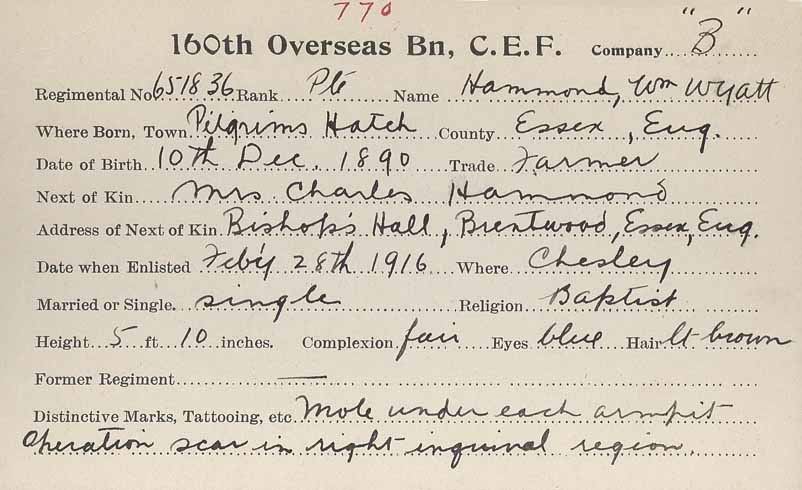 770
160th Overseas Bn, C.E.F. Company "B"
Regimental No 651836 Rank Pte Name Hammond, Wm Wyatt
Where Born, Town Pilgrims Hatch County Essex, Eng.
Date of Birth 10th Dec. 1890 Trade Farmer
Next of Kin Mrs Charles Hammond
Address of Next of Kin Bishop's Hall, Brentwood, Essex, Eng.
Date when Enlisted Feb'y 28th 1916 Where Chesley
Married or Single. single Religion Baptist
Height 5 ft 10 inches. Complexion fair Eyes blue Hair lt brown
Former Regiment —
Distinctive Marks, Tattooing, etc Mole under each armpit
Operation scar in right inguinal region.